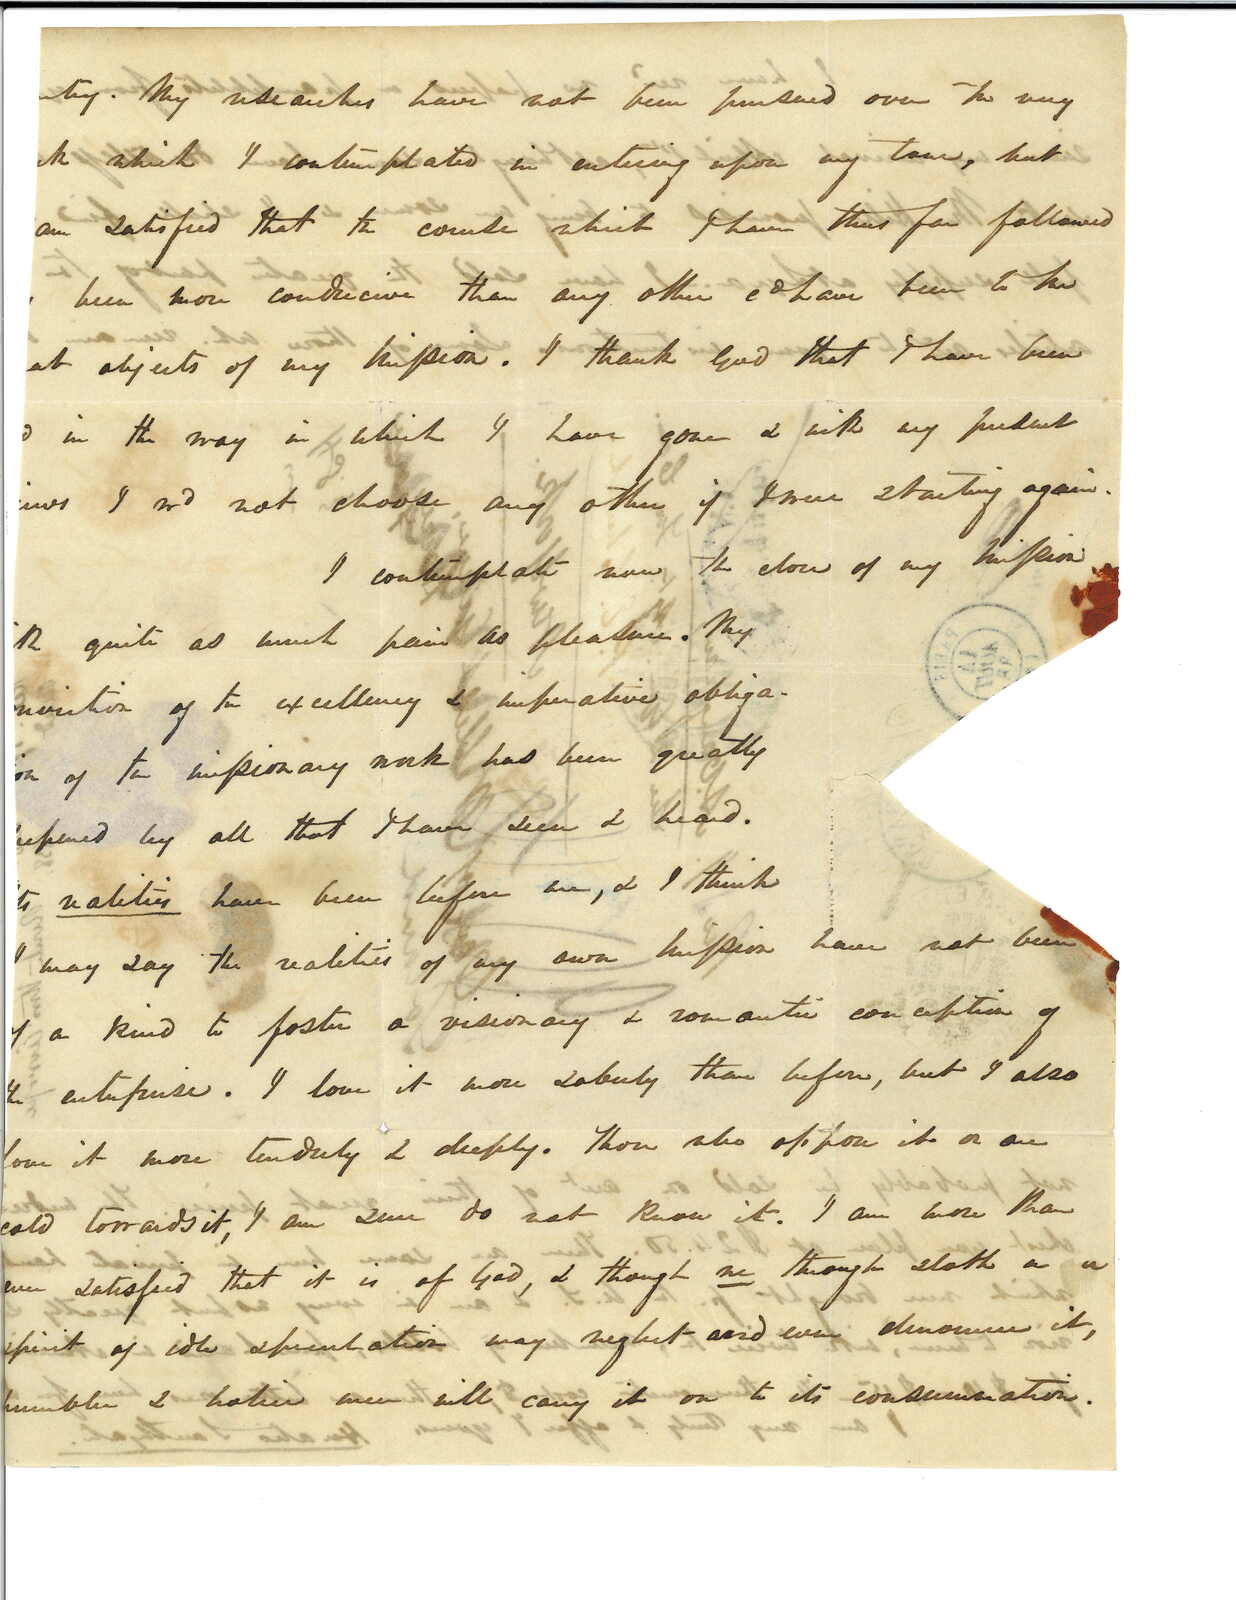 ntry. My researches have not been pursued over the very
ck which I contemplated in entering upon my tour, but
am satisfied that the course which I have thus far followed
been more conducive than any other cd have been to the
eat objects of my mission. I thank God that I have been
d in the way in which I have gone & with my present
iews I wd not choose any other if I were starting again.
I contemplate now the close of my mission
ith quite as much pain as pleasure. My
onviction of the excellency & imperative obliga-
ion of the missionary work has been greatly
eepened by all that I have seen & heard.
Its realities have been before me, & I think
I may say the realities of my own mission have not been
of a kind to foster a visionary & romantic conception of
the enterprise. I love it more soberly than before, but I also
love it more tenderly & deeply. Those who oppose it or are
cold towards it, I am sure do not know it. I am more than
ever satisfied that it is of God, & though we through sloth or a
spirit of idle speculation may neglect and even denounce it,
humbler & holier men will carry it on to its consummation.
PARIS